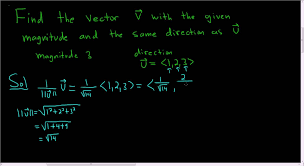 Find the vector v⃗ with the given
magnitude and the same direction as u⃗
magnitude 3
direction
u⃗ = <1,2,3>
Sol
1/||u⃗|| u⃗ = 1/√14 <1,2,3> = <1/√14, 2
||u⃗|| = √1²+2²+3²
= √1+4+9
= √14